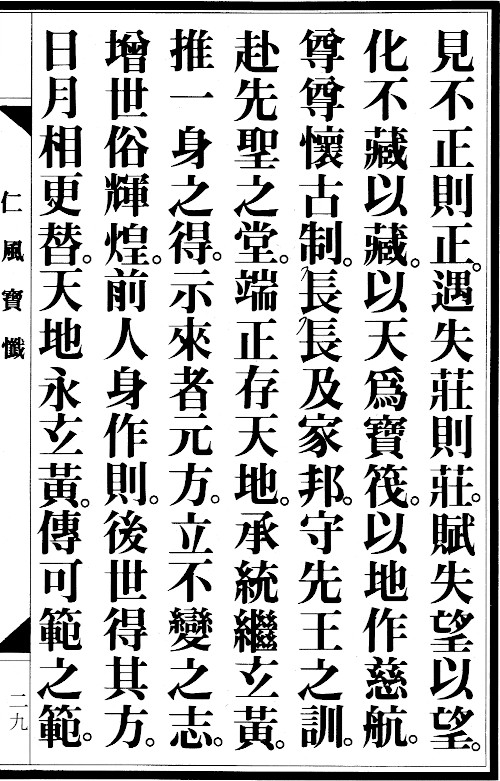 見不正則正。遇失莊則莊。賦失望以望。
化不藏以藏。以天爲寶筏。以地作慈航。
尊尊懷古制。長長及家邦。守先王之訓。
赴先聖之堂。端正存天地。承統繼玄黃。
推一身之得。示來者元方。立不變之志。
增世俗輝煌。前人身作則。後世得其方。
日月相更替。天地永玄黃。傳可範之範。
仁風寶懺
二九